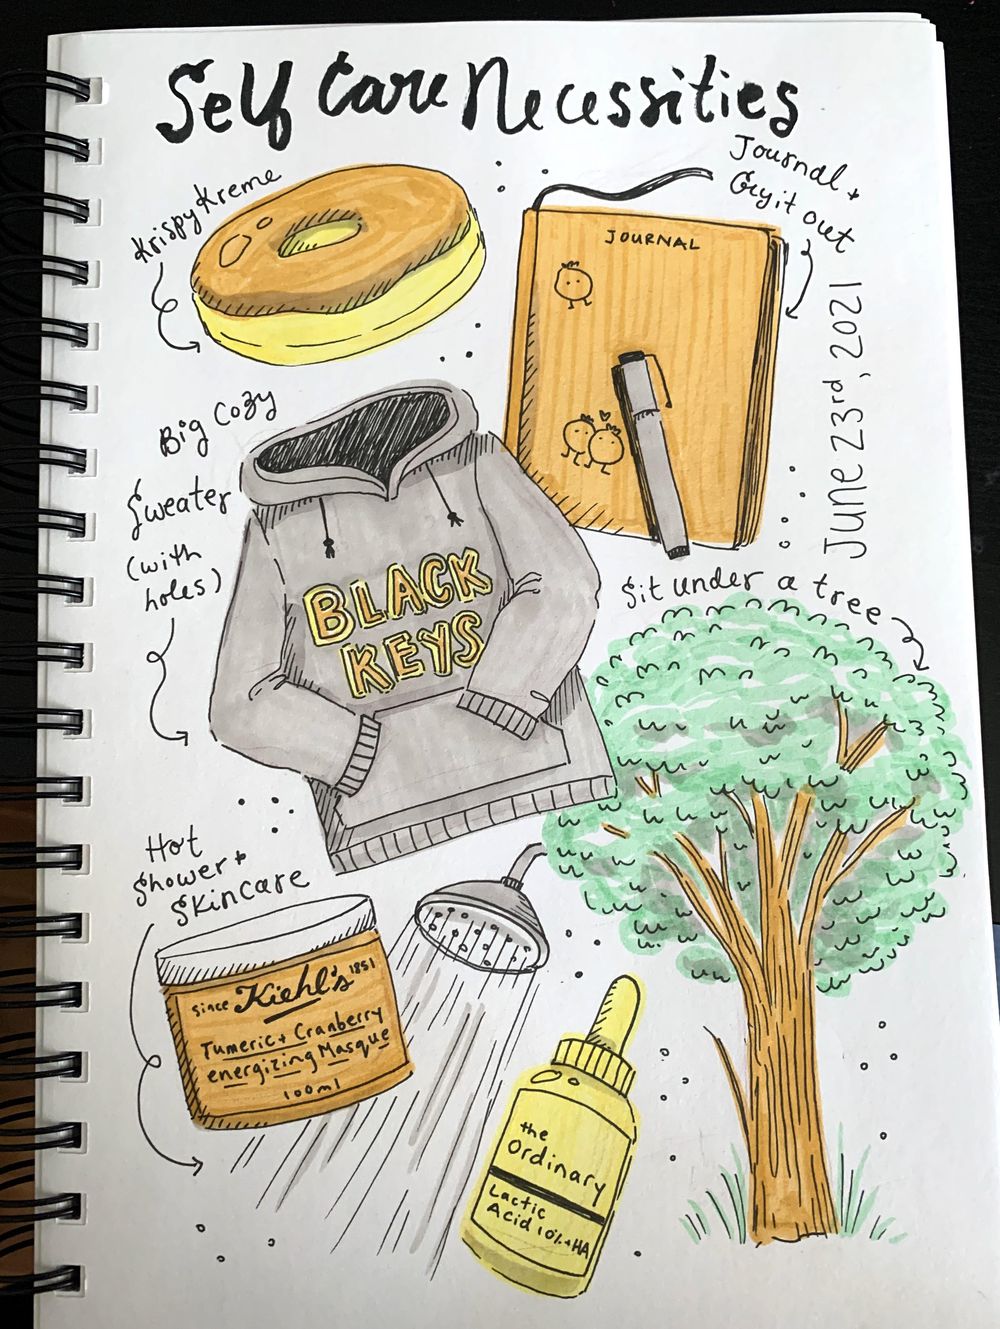 Self Care Necessities
Krispy Kreme
Journal +
Cry it out
JOURNAL
June 23rd, 2021
Big Cozy
Sweater
(with
holes)
BLACK
KEYS
Sit under a tree
Hot
Shower +
Skincare
since Kiehl's 1851
Tumeric + Cranberry
energizing Masque
100ml
the
Ordinary
Lactic
Acid 10% + HA